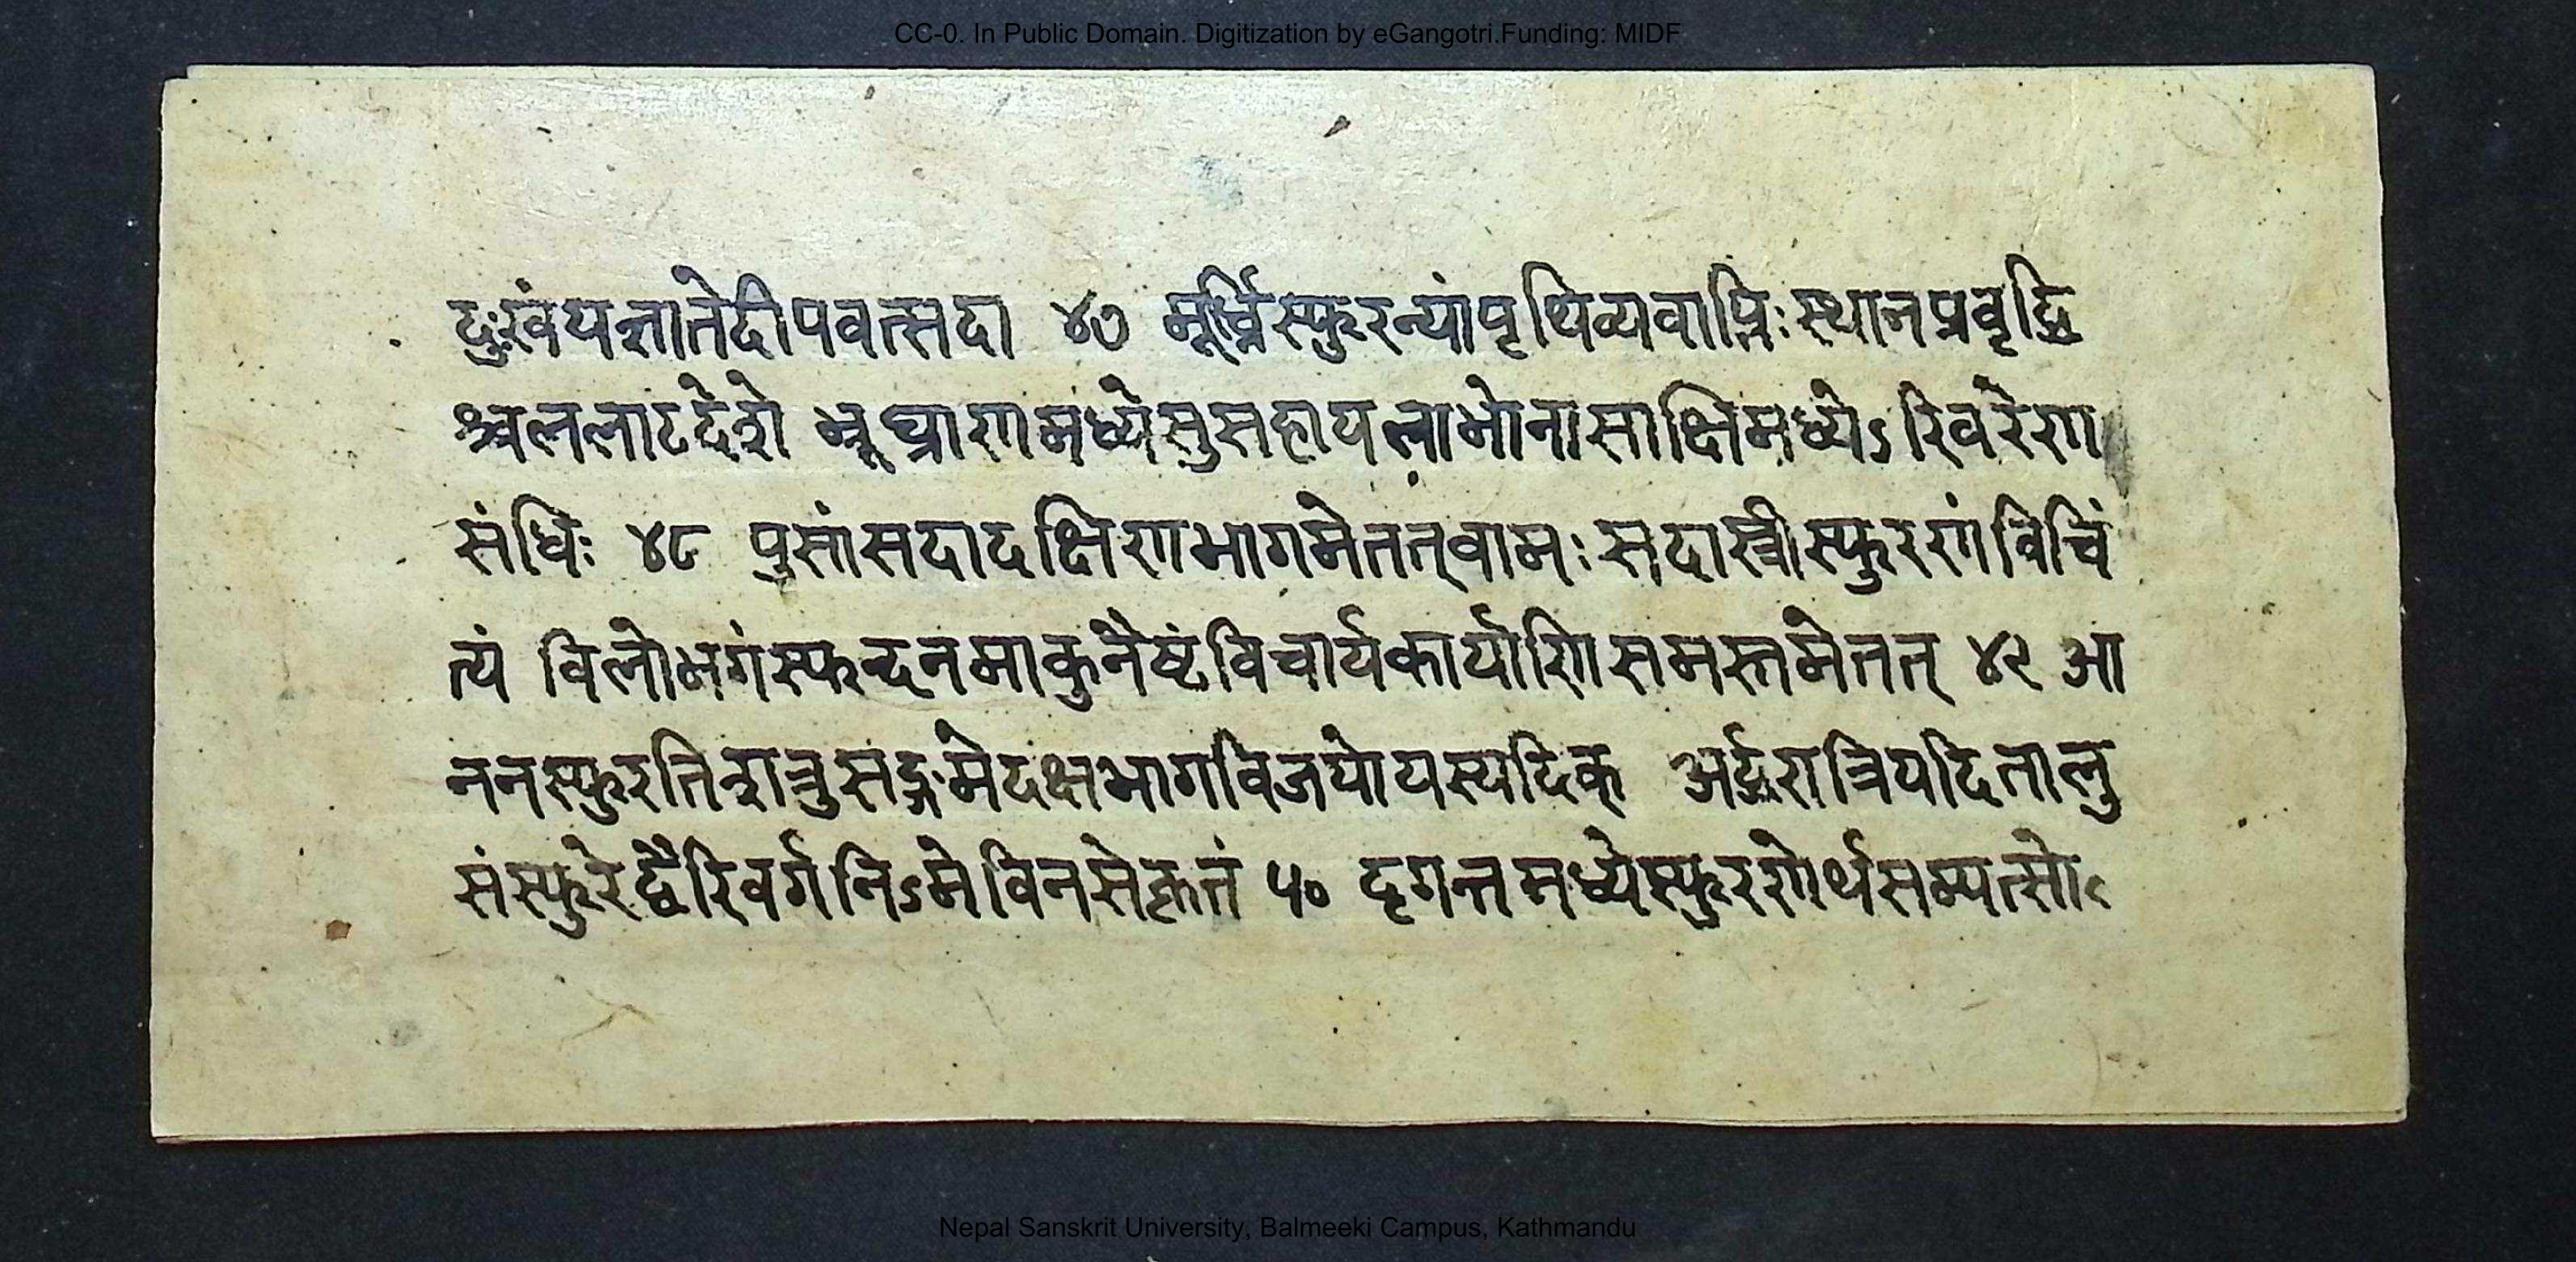 CC-0. In Public Domain. Digitization by eGangotri.Funding: MIDF
दुःखंयत्नातेदीपवत्सदा ४७ मूर्ध्निस्फुरन्यांपृथिव्यवाप्तिःस्थानप्रवृद्धि
श्चललाटदेशे भ्रूघ्राणमध्येसुसहायलाभोनासाक्षिमध्येऽरिवरेण
संधिः ४८ पुसांसदादक्षिणभागमेतत्वामःसदास्त्रीस्फुरणंविचिं
त्यं विलोभगंस्फन्दनमाकुनैष्टंविचार्यकार्याणिसमस्तमेतत् ४९ आ
ननस्फुरतिशत्रुसङ्गमेदक्षभागविजयोयस्यदिक् अर्द्धरात्रियदितालु
संस्फुरेद्वैरिवर्गनिऽमेविनसेकृतं ५० दृगन्तमध्येस्फुरणेर्थसम्पत्सो
Nepal Sanskrit University, Balmeeki Campus, Kathmandu